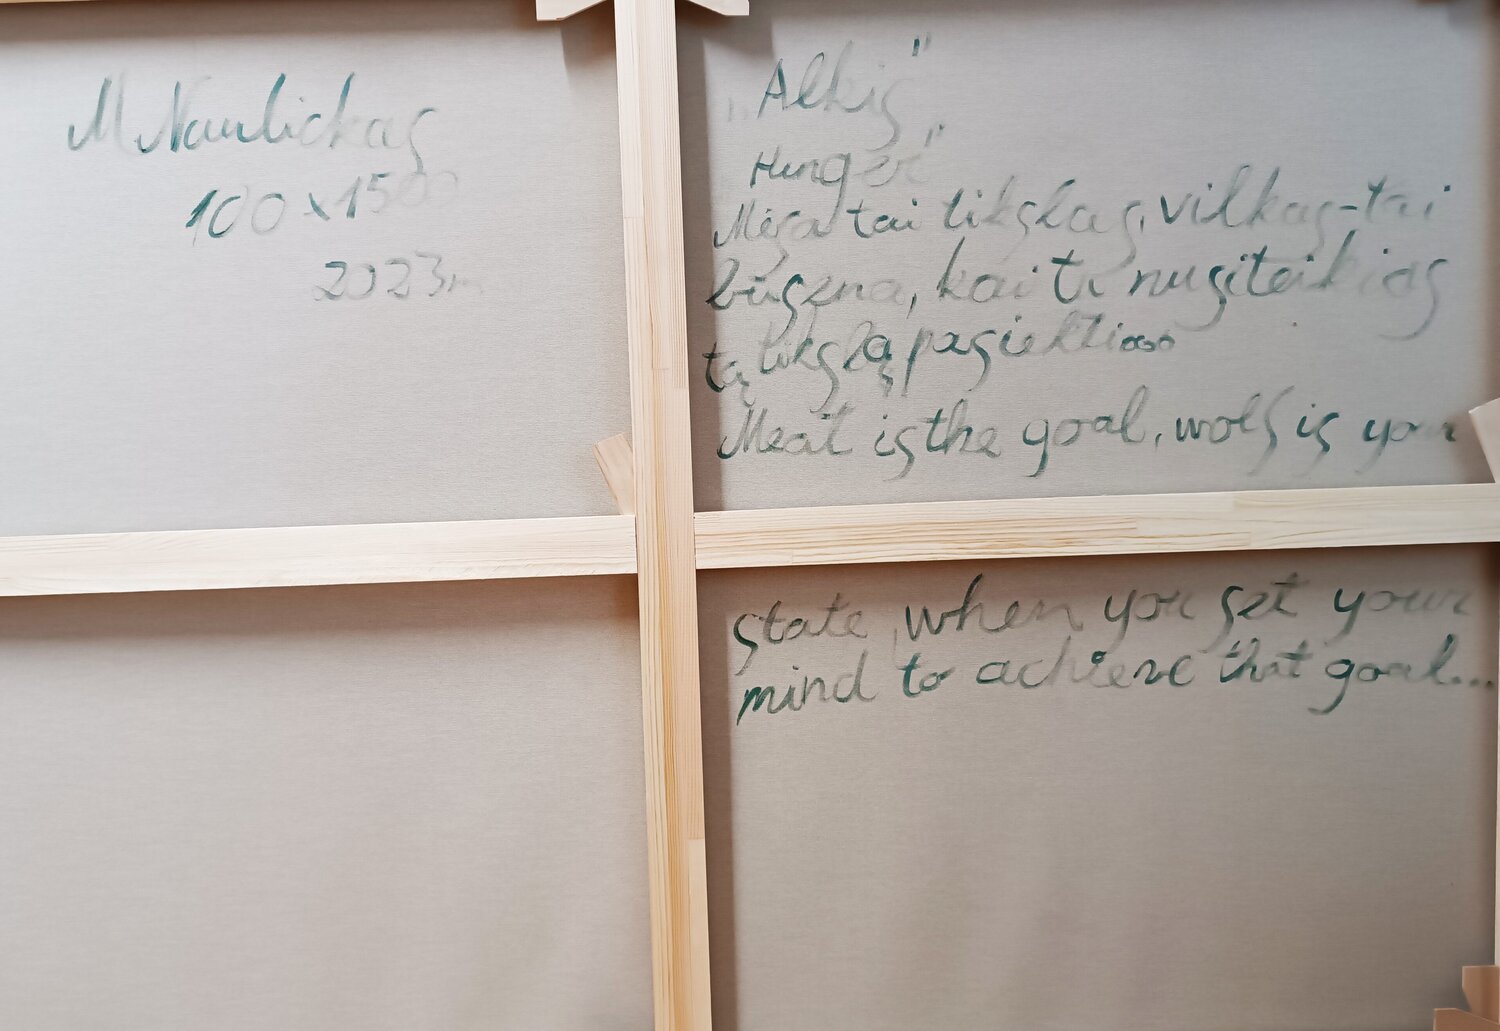 M Naulickas
100 x 150
2023m
„Alkis"
Hunger"
Mėsa tai tikslas, vilkas-tai
būsena, kai tu nusiteikias
tą tikslą pasiekti...
Meat is the goal, wolf is your
state, when you set your
mind to achieve that goal...